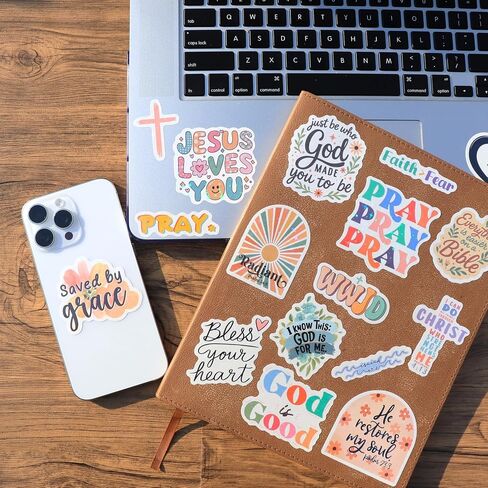 caps lock
shift
fn
control
option
command
command
option
JESUS
LOVES
YOU
PRAY.
Saved by
grace
just be who
God
MADE
you to be
Faith > Fear
PRAY
PRAY
PRAY
Everything
is easier
Bible
Radiant
WWJD
I KNOW THIS:
GOD IS
FOR ME.
I CAN
DO
CHRIST
WHO
ME
4:13
Bless
your
heart
God
is
Good
He
restores
my soul
psalm 23:3